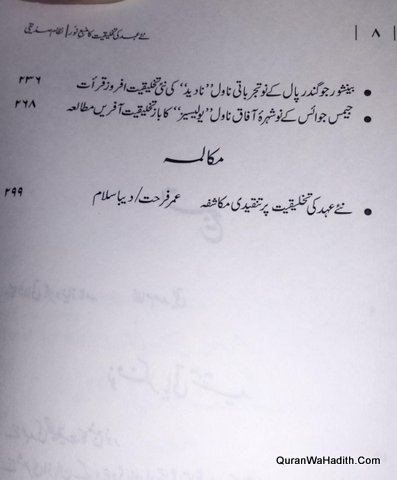 | ۸ | نئے عہد کی تخلیقیت کا منبع نور | نظام صدیقی
• بینشور جوگندر پال کے نو تجرباتی ناول ”نادید“ کی نئی تخلیقیت افروز قرأت ۲۳۶
• جیمس جوائس کے نو شہرۂ آفاق ناول ”یولیسیز“ کا باز تخلیقیت آفریں مطالعہ ۲۶۸
مکالمہ
• نئے عہد کی تخلیقیت پر تنقیدی مکاشفہ عمر فرحت/دیبا سلام ۲۹۹
QuranWaHadith.Com